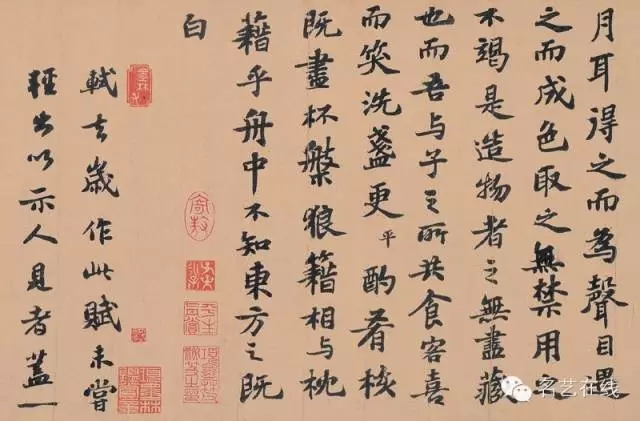 月耳得之而為聲目遇
之而成色取之無禁用之
不竭是造物者之無盡藏
也而吾与子之所共食客喜
而笑洗盞更平酌肴核
既盡杯槃狼籍相与枕
藉乎舟中不知東方之既
白
軾去歲作此賦未嘗
輕出以示人見者蓋一
名艺在线